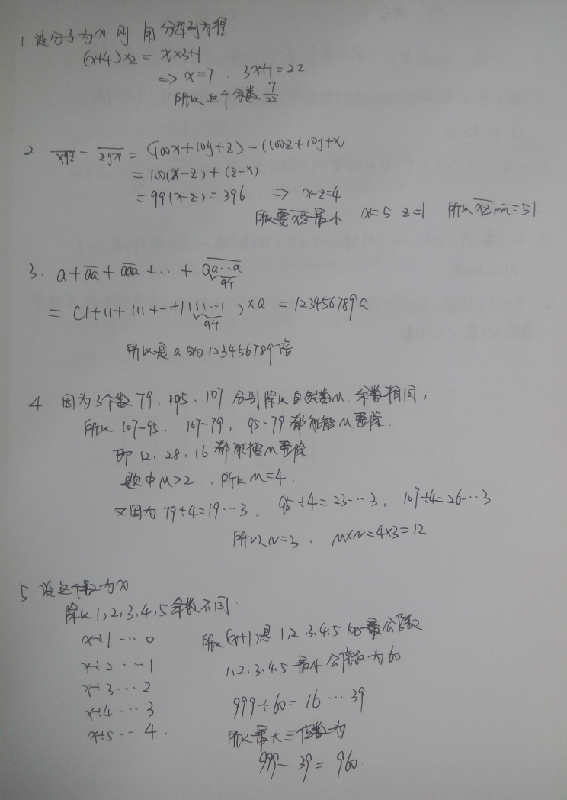 1 设分子为x 则 由分数列方程
(x+4)×2 = x×3+1
=> x=7 . 3x+1=22
所以这个分数 7/22
2 xyz - zyx = (100x+10y+z) - (100z+10y+x
= 100(x-z) + (z-x)
= 99(x-z) = 396 => x-z=4
所以要xz最小 x=5 z=1 所以xz min=51
3. a + aa + aaa + ... + aa...a 9个
= (1+11+111+...+111...1 9个) ×a = 123456789a
所以是a的123456789倍
4 因为3个数 79、95、107 分别除以自然数M 余数相同,
所以 107-95、107-79、95-79 都能被M整除.
即 12、28、16 都能被M整除
题中M>2 , 所以M=4.
又因为 79÷4=19...3 , 95÷4=23...3 , 107÷4=26...3
所以N=3 , M×N=4×3=12
5 设这个数为x
除以 1,2,3,4,5 余数不同.
x÷1 ... 0 所以(x+1)是 1,2,3,4,5 的 公倍数
x÷2 ... 1 1,2,3,4,5 最小公倍数为60
x÷3 ... 2
x÷4 ... 3 999÷60 = 16 ... 39
x÷5 ... 4. 所以最大三位数为
999-39 = 960.